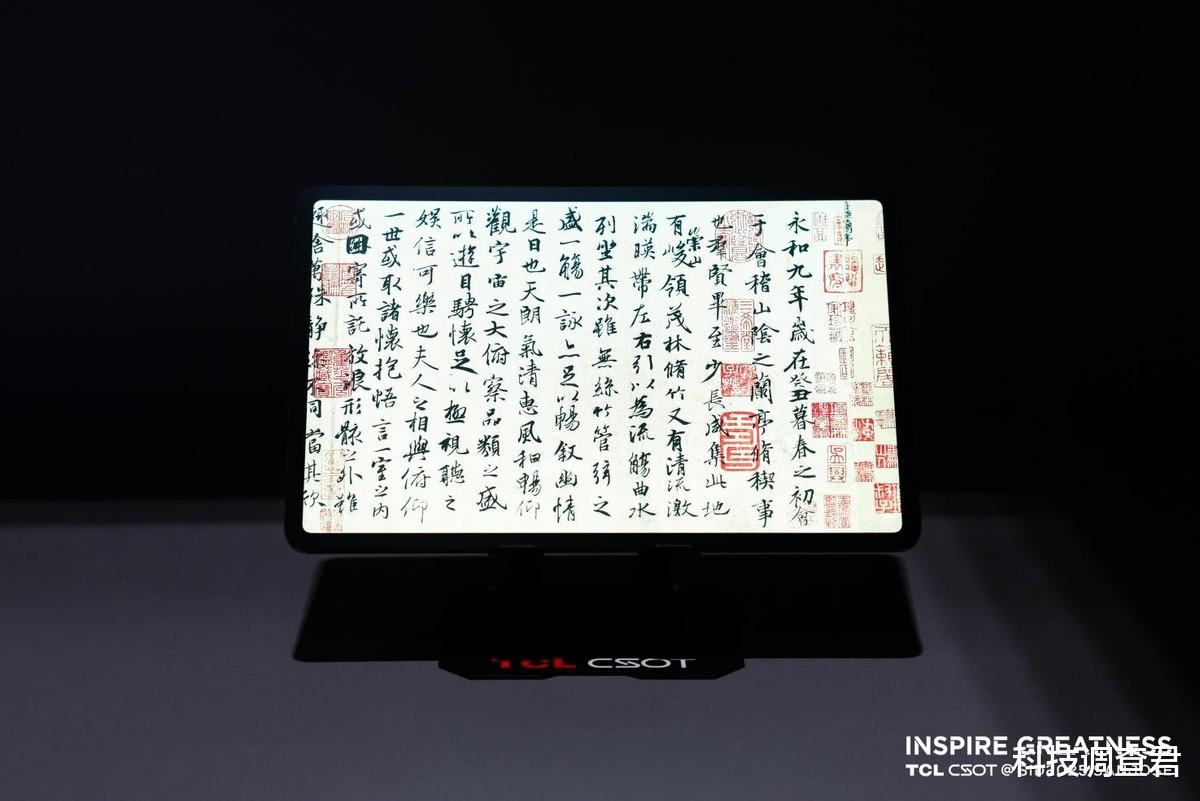 永和九年歲在癸丑暮春之初會
于會稽山陰之蘭亭脩稧事
也羣賢畢至少長咸集此地
有崇山峻領茂林脩竹又有清流激
湍暎帶左右引以為流觴曲水
列坐其次雖無絲竹管弦之
盛一觴一詠亦足以暢敘幽情
是日也天朗氣清惠風和暢仰
觀宇宙之大俯察品類之盛
所以遊目騁懷足以極視聽之
娛信可樂也夫人之相與俯仰
一世或取諸懷抱悟言一室之內
或因寄所託放浪形骸之外雖
趣舍萬殊靜躁不同當其欣
TCL CSOT
INSPIRE GREATNESS
TCL CSOT @
科技调查君